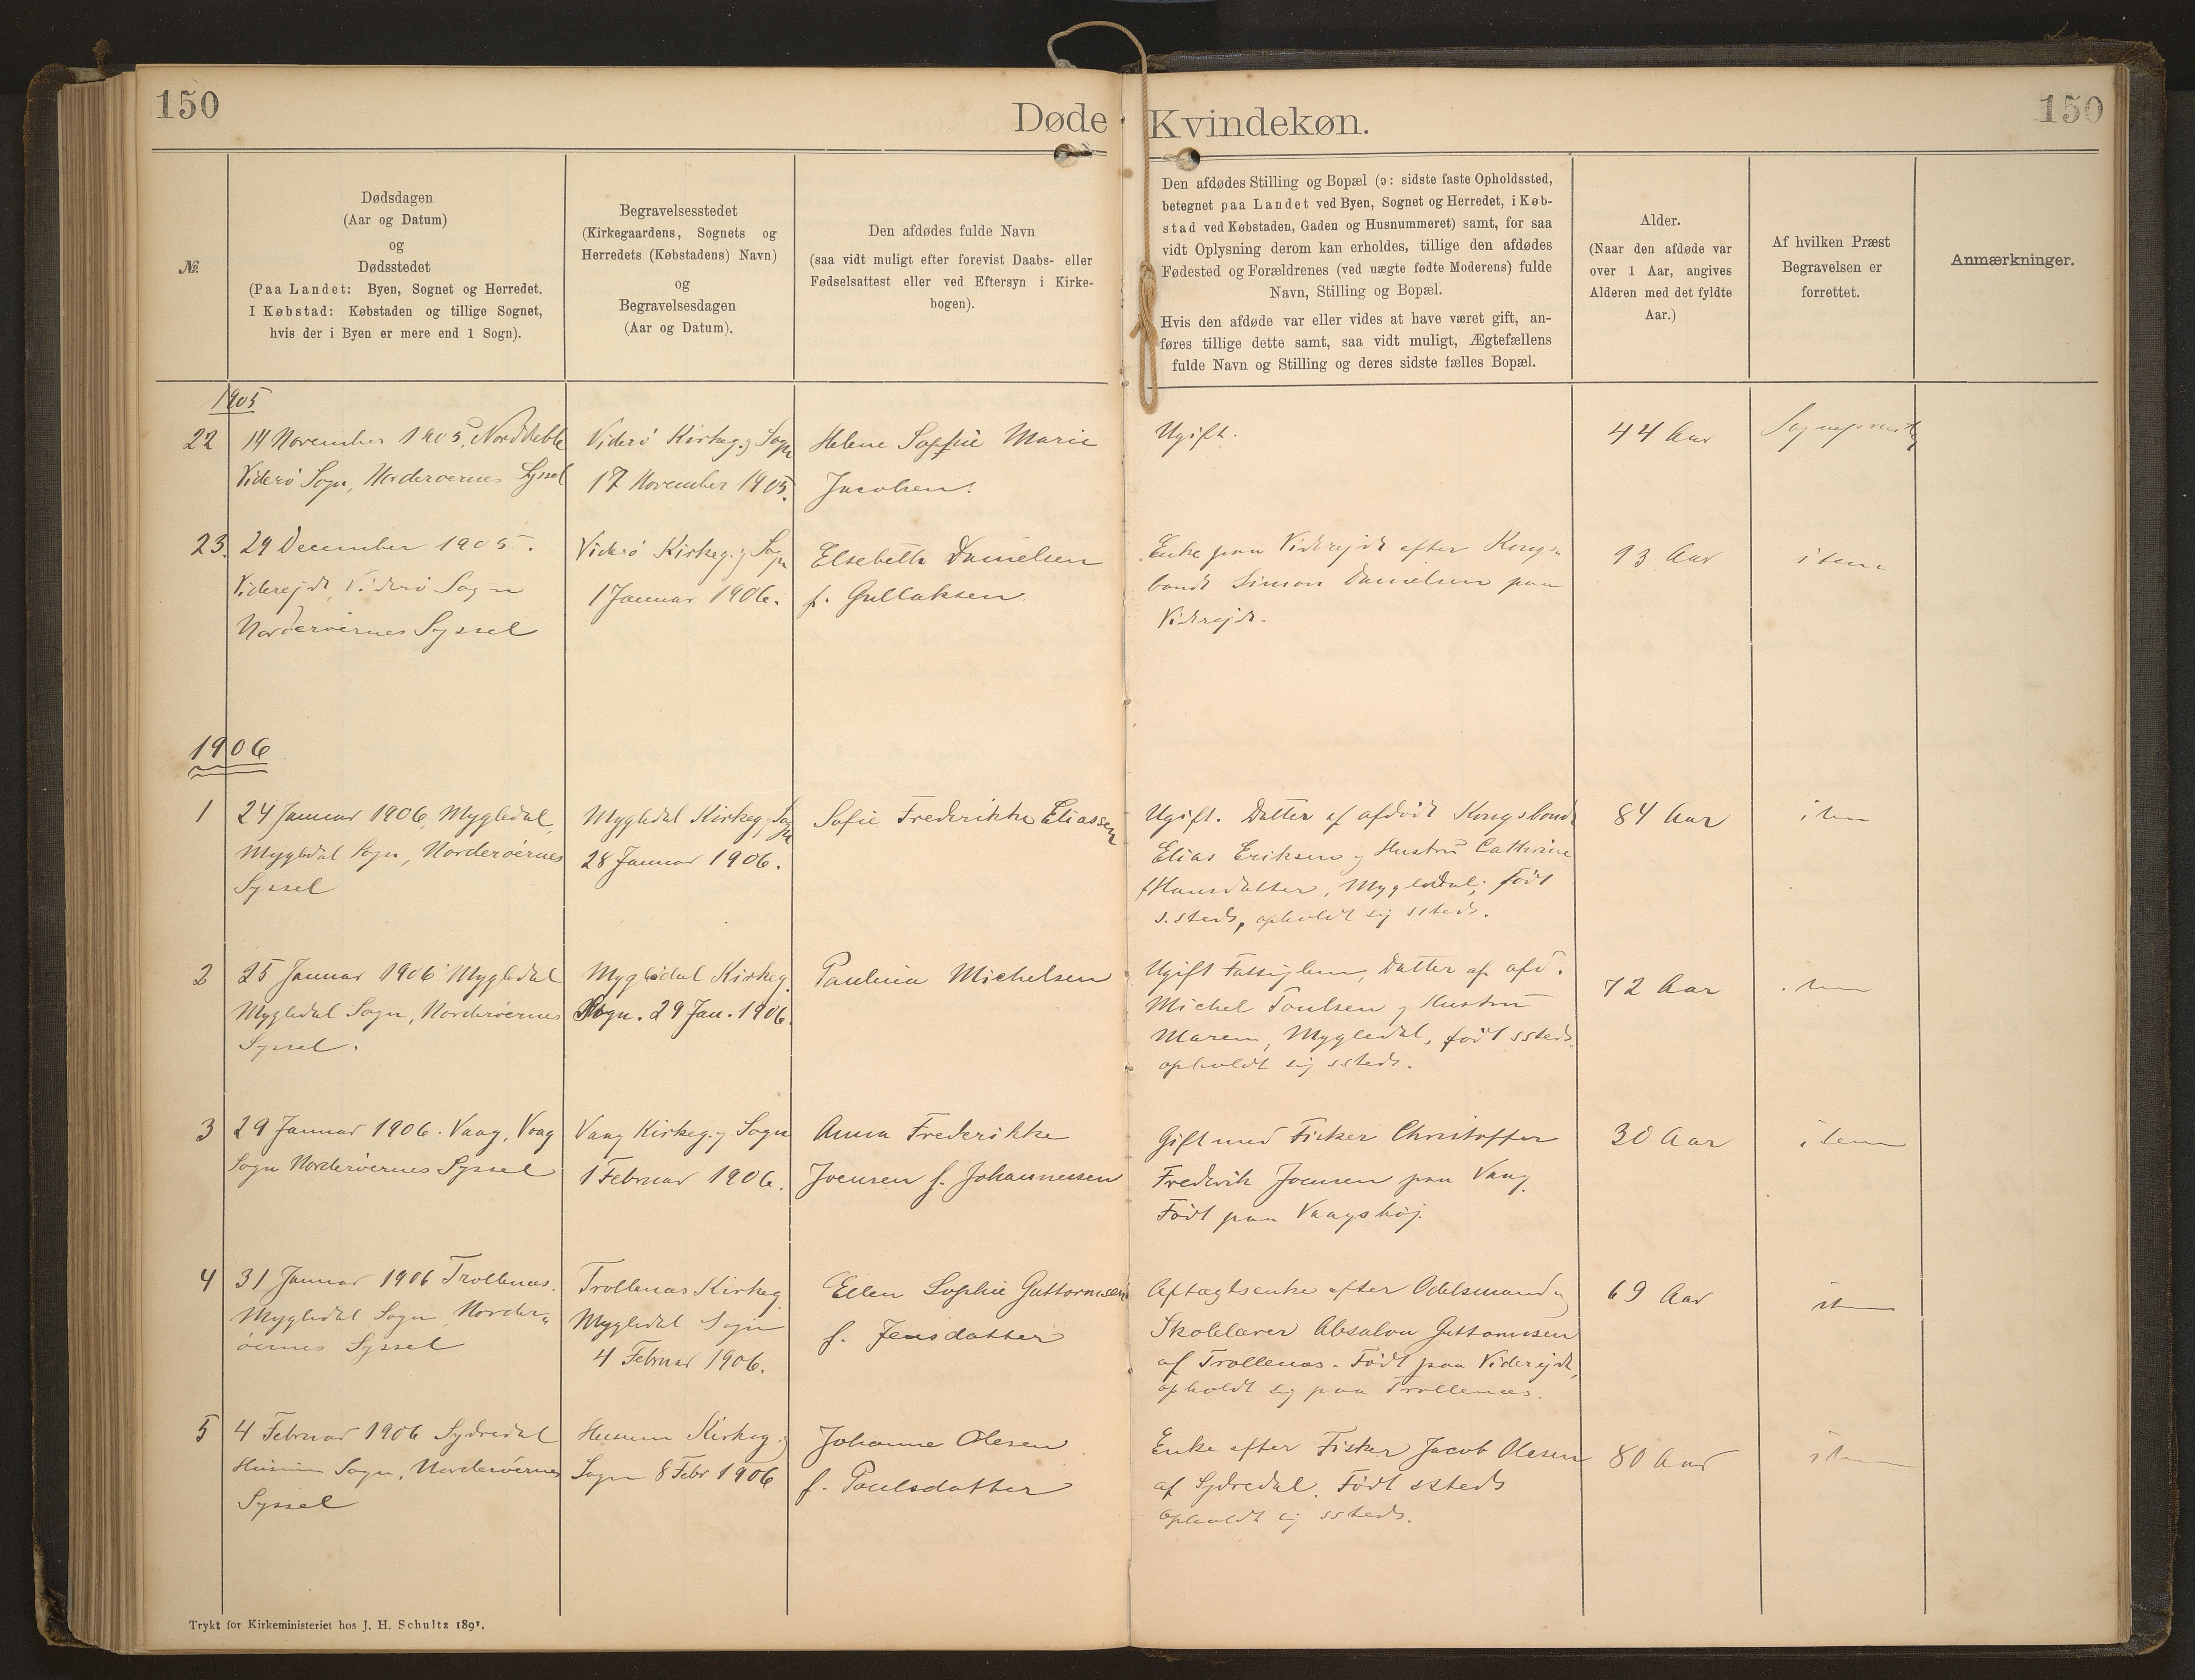 150
Døde Kvindekøn.
150
№.
Dødsdagen
(Aar og Datum)
og
Dødsstedet
(Paa Landet: Byen, Sognet og Herredet.
I Købstad: Købstaden og tillige Sognet,
hvis der i Byen er mere end 1 Sogn).
Begravelsesstedet
(Kirkegaardens, Sognets og
Herredets (Købstadens) Navn)
og
Begravelsesdagen
(Aar og Datum).
Den afdødes fulde Navn
(saa vidt muligt efter forevist Daabs- eller
Fødselsattest eller ved Eftersyn i Kirke-
bogen).
Den afdødes Stilling og Bopæl (ɔ: sidste faste Opholdssted,
betegnet paa Landet ved Byen, Sognet og Herredet, i Køb-
stad ved Købstaden, Gaden og Husnummeret) samt, for saa
vidt Oplysning derom kan erholdes, tillige den afdødes
Fødested og Forældrenes (ved uægte fødte Moderens) fulde
Navn, Stilling og Bopæl.
Hvis den afdøde var eller vides at have været gift, an-
føres tillige dette samt, saa vidt muligt, Ægtefællens
fulde Navn og Stilling og deres sidste fælles Bopæl.
Alder.
(Naar den afdøde var
over 1 Aar, angives
Alderen med det fyldte
Aar.)
Af hvilken Præst
Begravelsen er
forrettet.
Anmærkninger.
1905
22
14 November 1905, Norddeble
Viderö Sogn, Norderöernes Syssel
Viderö Kirkeg. og Sogn
17 November 1905.
Helene Sophie Marie
Jacobsen.
Ugift.
44 Aar
Sognepræst
23.
29 December 1905.
Viderejde, Viderö Sogn
Norderöernes Syssel
Viderö Kirkeg. og Sogn
1 Januar 1906.
Elsebetta Danielsen
f. Gullaksen
Enke paa Viderejde efter Kongs-
bonde Simon Danielsen paa
Viderejde.
93 Aar
item
1906
1
24 Januar 1906, Mygledal,
Mygledal Sogn, Norderöernes
Syssel
Mygledal Kirkeg. og Sogn
28 Januar 1906.
Sofie Frederikke Eliassen
Ugift. Datter af afdöde Kongsbonde
Elias Eriksen og Hustru Cathrine
f Hansdatter, Mygledal; födt
s.steds, opholdt sig ssteds.
84 Aar
item
2
25 Januar 1906 Mygledal
Mygledal Sogn, Norderöernes
Syssel.
Mygledal Kirkeg.
Sogn. 29 Jan. 1906.
Paulina Michelsen
Ugift Fattiglem, Datter af afd.
Michel Poulsen og Hustru
Maren, Mygledal, födt ssteds.
opholdt sig ssteds.
72 Aar
item
3
29 Januar 1906. Vaag, Vaag
Sogn Norderöernes Syssel
Vaag Kirkeg. og Sogn
1 Februar 1906.
Anna Frederikke
Joensen f. Johannesen
Gift med Fisker Christoffer
Frederik Joensen paa Vaag.
Födt paa Vaagshöj.
30 Aar
item
4
31 Januar 1906 Trollenæs.
Mygledal Sogn Norder-
öernes Syssel
Trollenæs Kirkeg.
Mygledal Sogn
4 Februar 1906.
Ellen Sophie Guttormsen
f. Jensdatter
Aftægtsenke efter Odelsmand og
Skolelærer Absalon Guttormsen
af Trollenæs. Födt paa Viderejde,
opholdt sig paa Trollenæs.
69 Aar
item
5
4 Februar 1906 Sydredal
Husum Sogn, Norderöernes
Syssel
Husum Kirkeg. og
Sogn 8 Febr 1906
Johanne Olesen
f. Poulsdatter
Enke efter Fisker Jacob Olesen
af Sydredal. Födt ssteds
opholdt sig ssteds.
80 Aar
item
Trykt for Kirkeministeriet hos J. H. Schultz 1891.